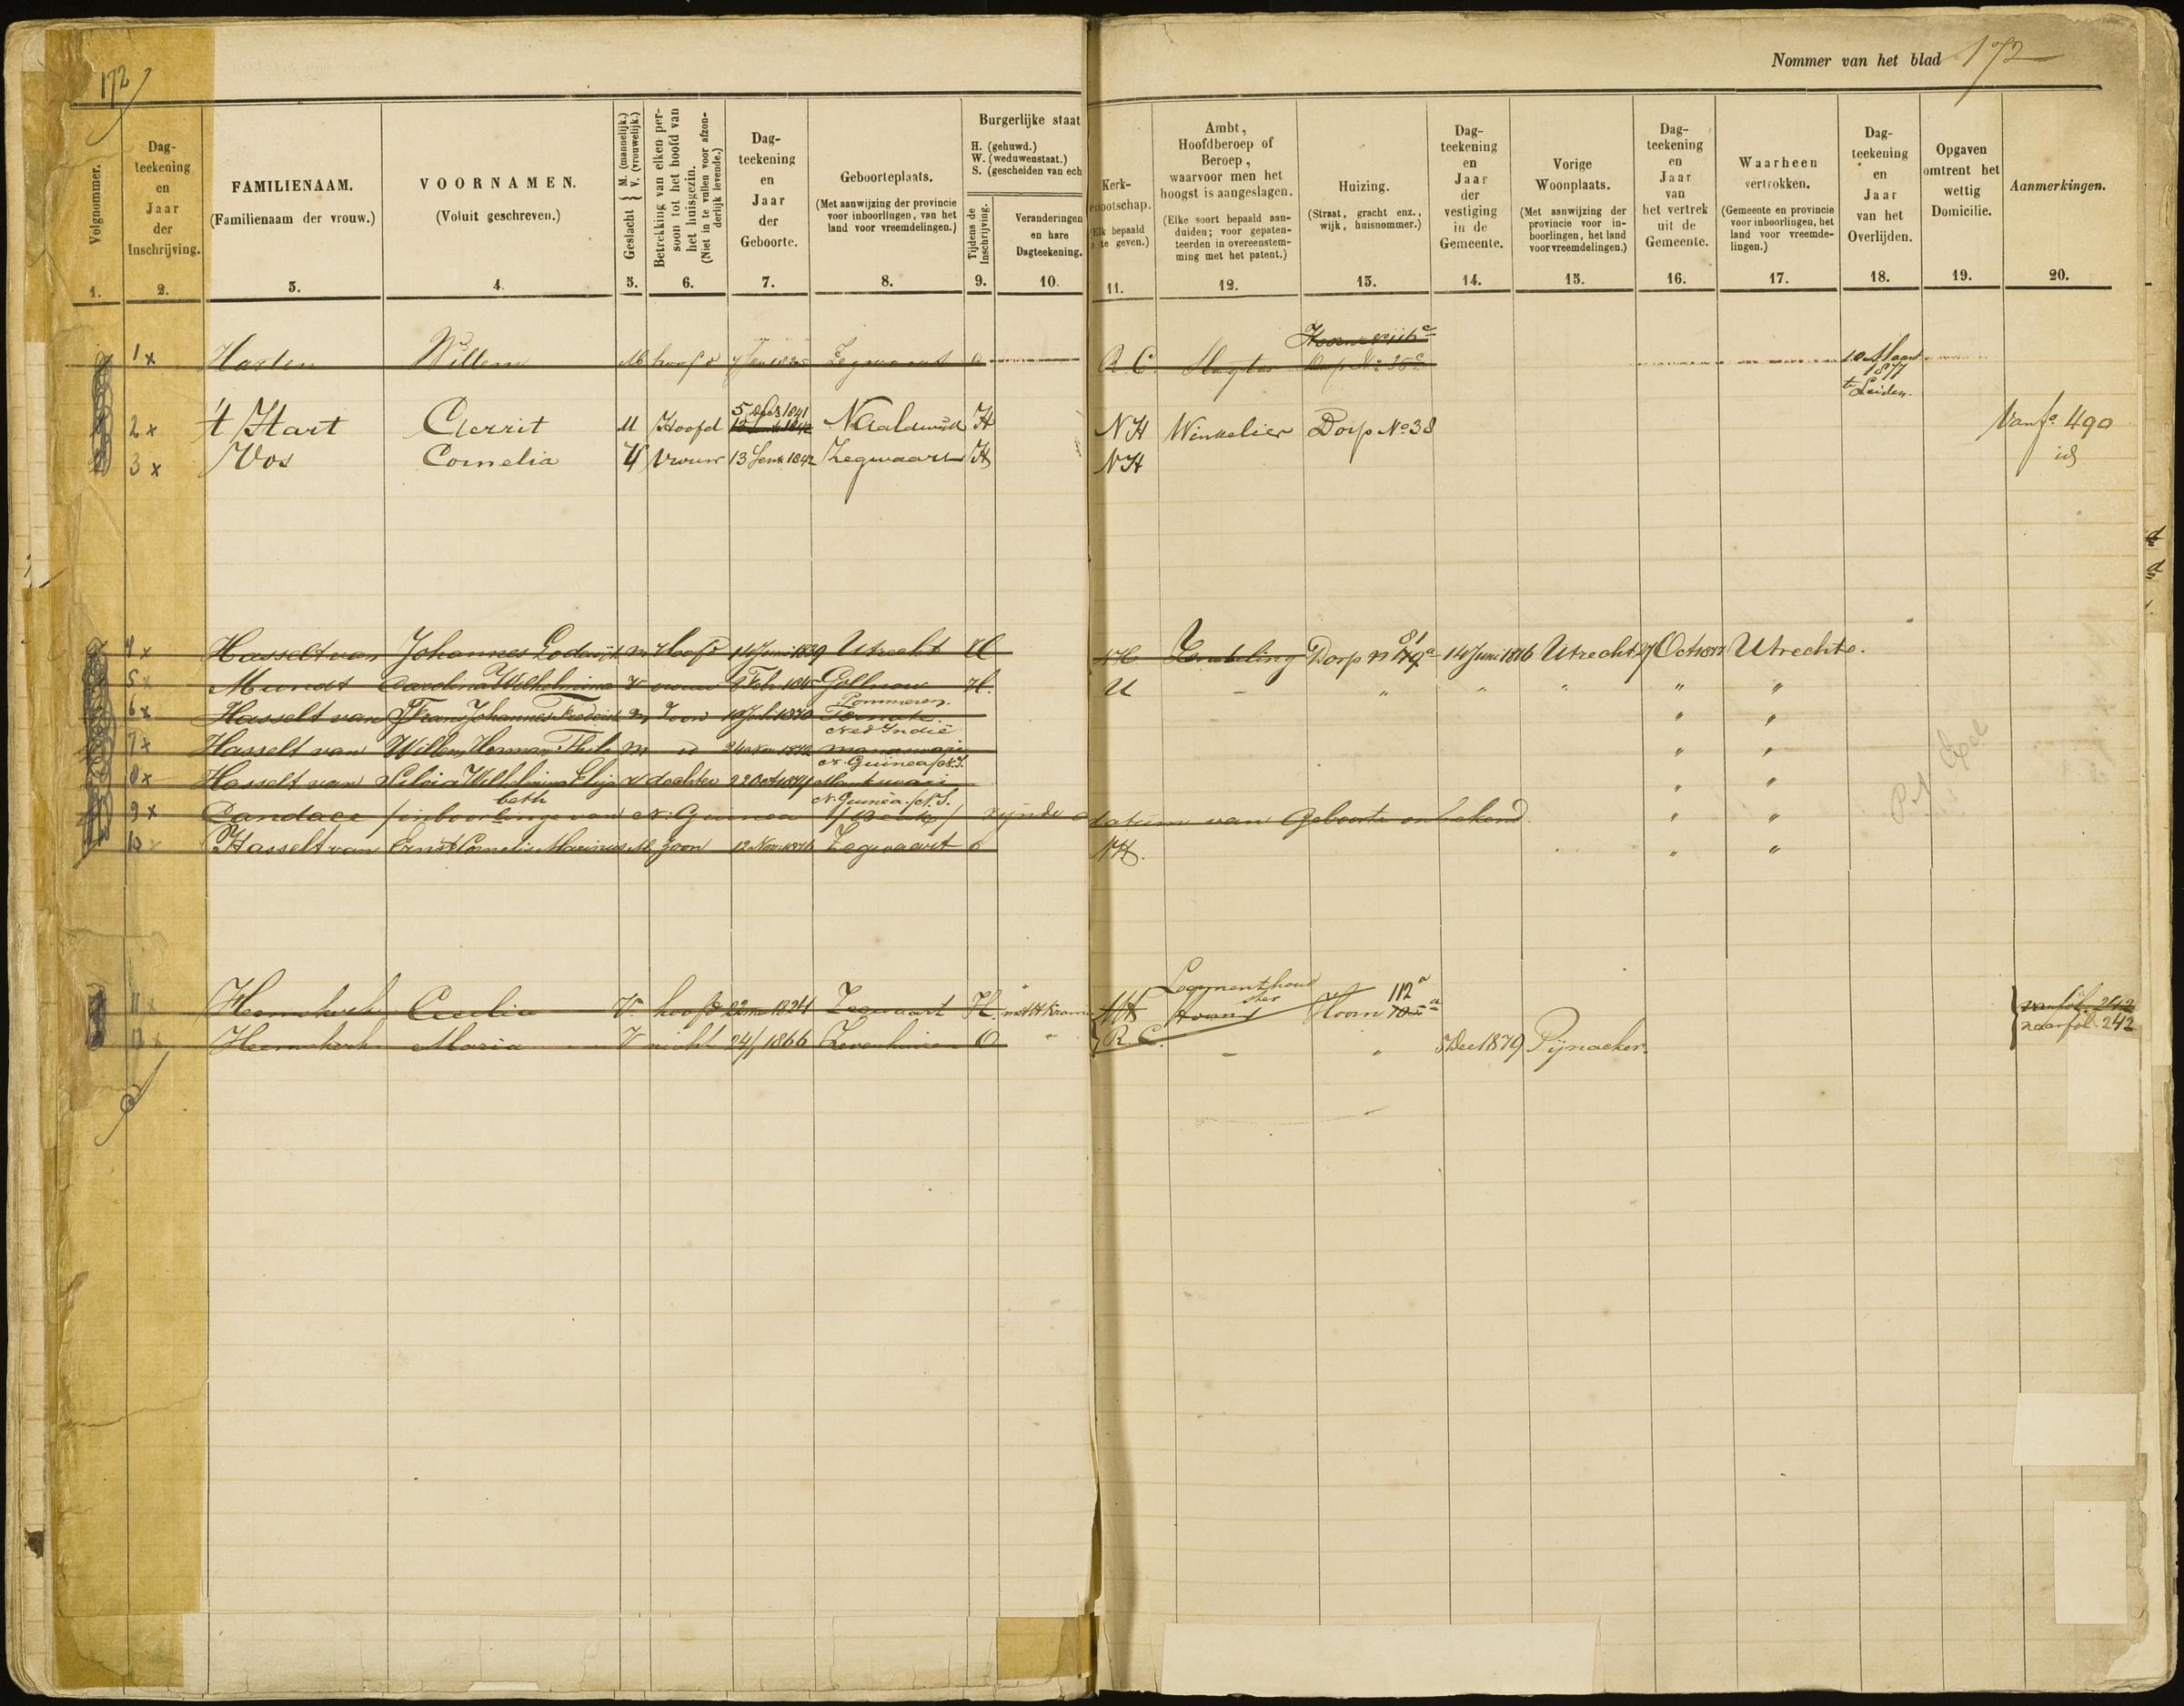 172
Nommer van het blad 172
Volgnommer.
1.
Dag-
teekening
en
Jaar
der
Inschrijving.
2.
FAMILIENAAM.
(Familienaam der vrouw.)
3.
VOORNAMEN.
(Voluit geschreven.)
4.
Geslacht { M. (mannelijk.) V. (vrouwelijk.)
5.
Betrekking van elken per-
soon tot het hoofd van
het huisgezin.
(Niet in te vullen voor afzon-
derlijk levende.)
6.
Dag-
teekening
en
Jaar
der
Geboorte.
7.
Geboorteplaats.
(Met aanwijzing der provincie
voor inboorlingen, van het
land voor vreemdelingen.)
8.
Burgerlijke staat
H. (gehuwd.)
W. (weduwenstaat.)
S. (gescheiden van ech
Tijdens de
Inschrijving.
9.
Veranderingen
en hare
Dagteekening.
10.
Kerk-
enootschap.
Elk bepaald
te geven.)
11.
Ambt,
Hoofdberoep of
Beroep,
waarvoor men het
hoogst is aangeslagen.
(Elke soort bepaald aan-
duiden; voor gepaten-
teerden in overeenstem-
ming met het patent.)
12.
Huizing.
(Straat, gracht enz.,
wijk, huisnommer.)
13.
Dag-
teekening
en
Jaar
der
vestiging
in de
Gemeente.
14.
Vorige
Woonplaats.
(Met aanwijzing der
provincie voor in-
boorlingen, het land
voor vreemdelingen.)
15.
Dag-
teekening
en
Jaar
van
het vertrek
uit de
Gemeente.
16.
Waarheen
vertrokken.
(Gemeente en provincie
voor inboorlingen, het
land voor vreemde-
lingen.)
17.
Dag-
teekening
en
Jaar
van het
Overlijden.
18.
Opgaven
omtrent het
wettig
Domicilie.
19.
Aanmerkingen.
20.
1 x Harten Willem M hoofd Zegwaart R.C. Slagter 10 Maart
1877
te Leiden.
5 Dec 1841
2 x 't Hart Gerrit M Hoofd Naaldwijk H NH Winkelier Dorp No 38 Van fo 490
3 x Vos Cornelia V Vrouw 13 1842 Zegwaart H NH id
81
4 x Hasselt van Johannes Lodewijk M Hoofd 14 Juni 1839 Utrecht H NH Zendeling Dorp n 49a 14 Juni 1876 Utrecht 27 Oct 1877 Utrecht
5 x Mundt Carolina Wilhelmina V vrouw 8 Feb 1845 Gollnow H. " " " " " "
Pommeren.
6 x Hasselt van Frans Johannes Frederik M Zoon 10 Juli 1870 Ternate " "
Ned Indië
7 x Hasselt van Willem Herman M id 1872 " "
N. Guinea / N.I.
8 x Hasselt van Silvia Wilhelmina Eliza V dochter 22 Oct 1874 " "
beth N. Guinea / N.I.
9 x Candace / inboorlinge van N. Guinea zijnde datum van Geboorte onbekend " "
10 Hasselt van Ernst Cornelis Marinus M. Zoon 12 Nov 1876 Zegwaart O N.H. " "
Logementhoud
ster 112a
11 x Heemskerk Cecilia V. hoofd 22 1824 Zegwaart H. NH Hoorn van fol. 242
naar fol. 242
12 x Heemskerk Maria V nicht 24/1 1866 Zevenhuizen O " R.C. " 5 Dec 1879 Pijnacker.